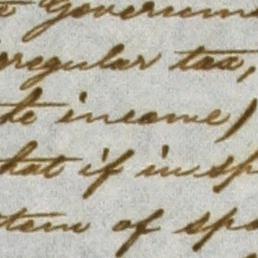 Governm
irregular tax,
te income)
that if in sp
stem of spe